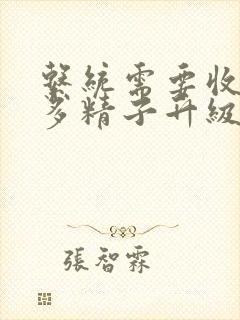 繫統需要收
多精子升級
張智霖